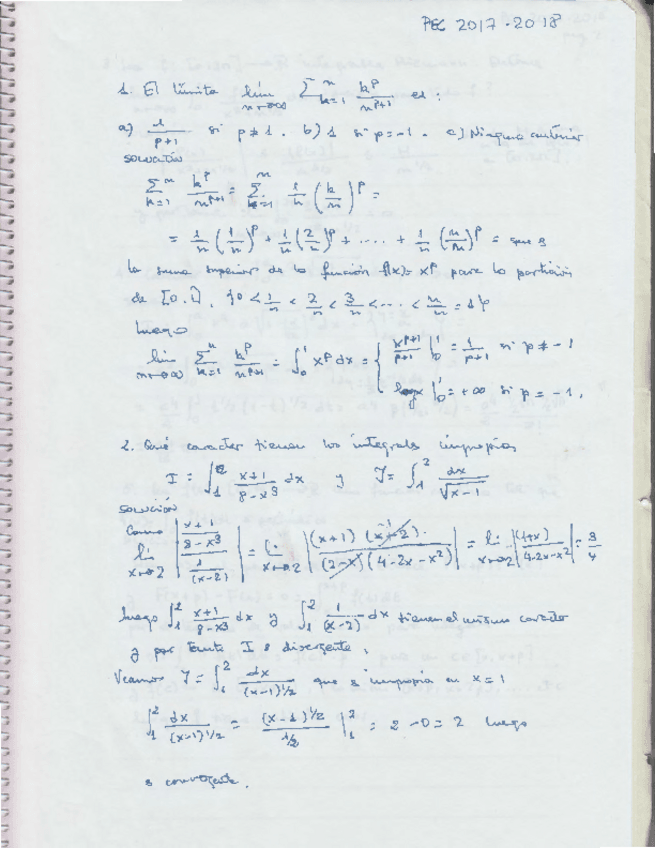 PEC 2017-2018
1. El límite lim n→∞ ∑ k=1 n k^p/n^(p+1) es:
a) 1/(p+1) si p≠1. b) 1 si p=-1. c) Ninguna anterior
SOLUCIÓN
∑ k=1 n k^p/n^(p+1) = ∑ k=1 n 1/n (k/n)^p =
= 1/n (1/n)^p + 1/n (2/n)^p + .... + 1/n (n/n)^p = que es
la suma superior de la función f(x)= x^p para la partición
de [0.1], {0 < 1/n < 2/n < 3/n < ... < n/n = 1}
luego
lim n→∞ ∑ k=1 n k^p/n^(p+1) = ∫ 0 1 x^p dx = { x^(p+1)/(p+1) | 0 1 = 1/(p+1) si p ≠ -1
log x | 0 1 = +∞ si p = -1.
2. Qué caracter tienen las integrales impropias
I = ∫ 1 2 (x+1)/(8-x³) dx y J = ∫ 1 2 dx/√(x-1)
SOLUCIÓN
Como
lim x→2 | ((x+1)/(8-x³)) / (1/(x-2)) | = lim x→2 | (x+1)(x-2) / (2-x)(4-2x-x²) | = lim x→2 | (1+x)/(4-2x-x²) | = 3/4
luego ∫ 1 2 (x+1)/(8-x³) dx y ∫ 1 2 1/(x-2) dx tienen el mismo caracter
y por tanto I es divergente.
Veamos J = ∫ 1 2 dx/(x-1)^1/2 que es impropia en x=1
∫ 1 2 dx/(x-1)^1/2 = (x-1)^1/2 / 1/2 | 1 2 = 2-0=2 luego
es convergente.